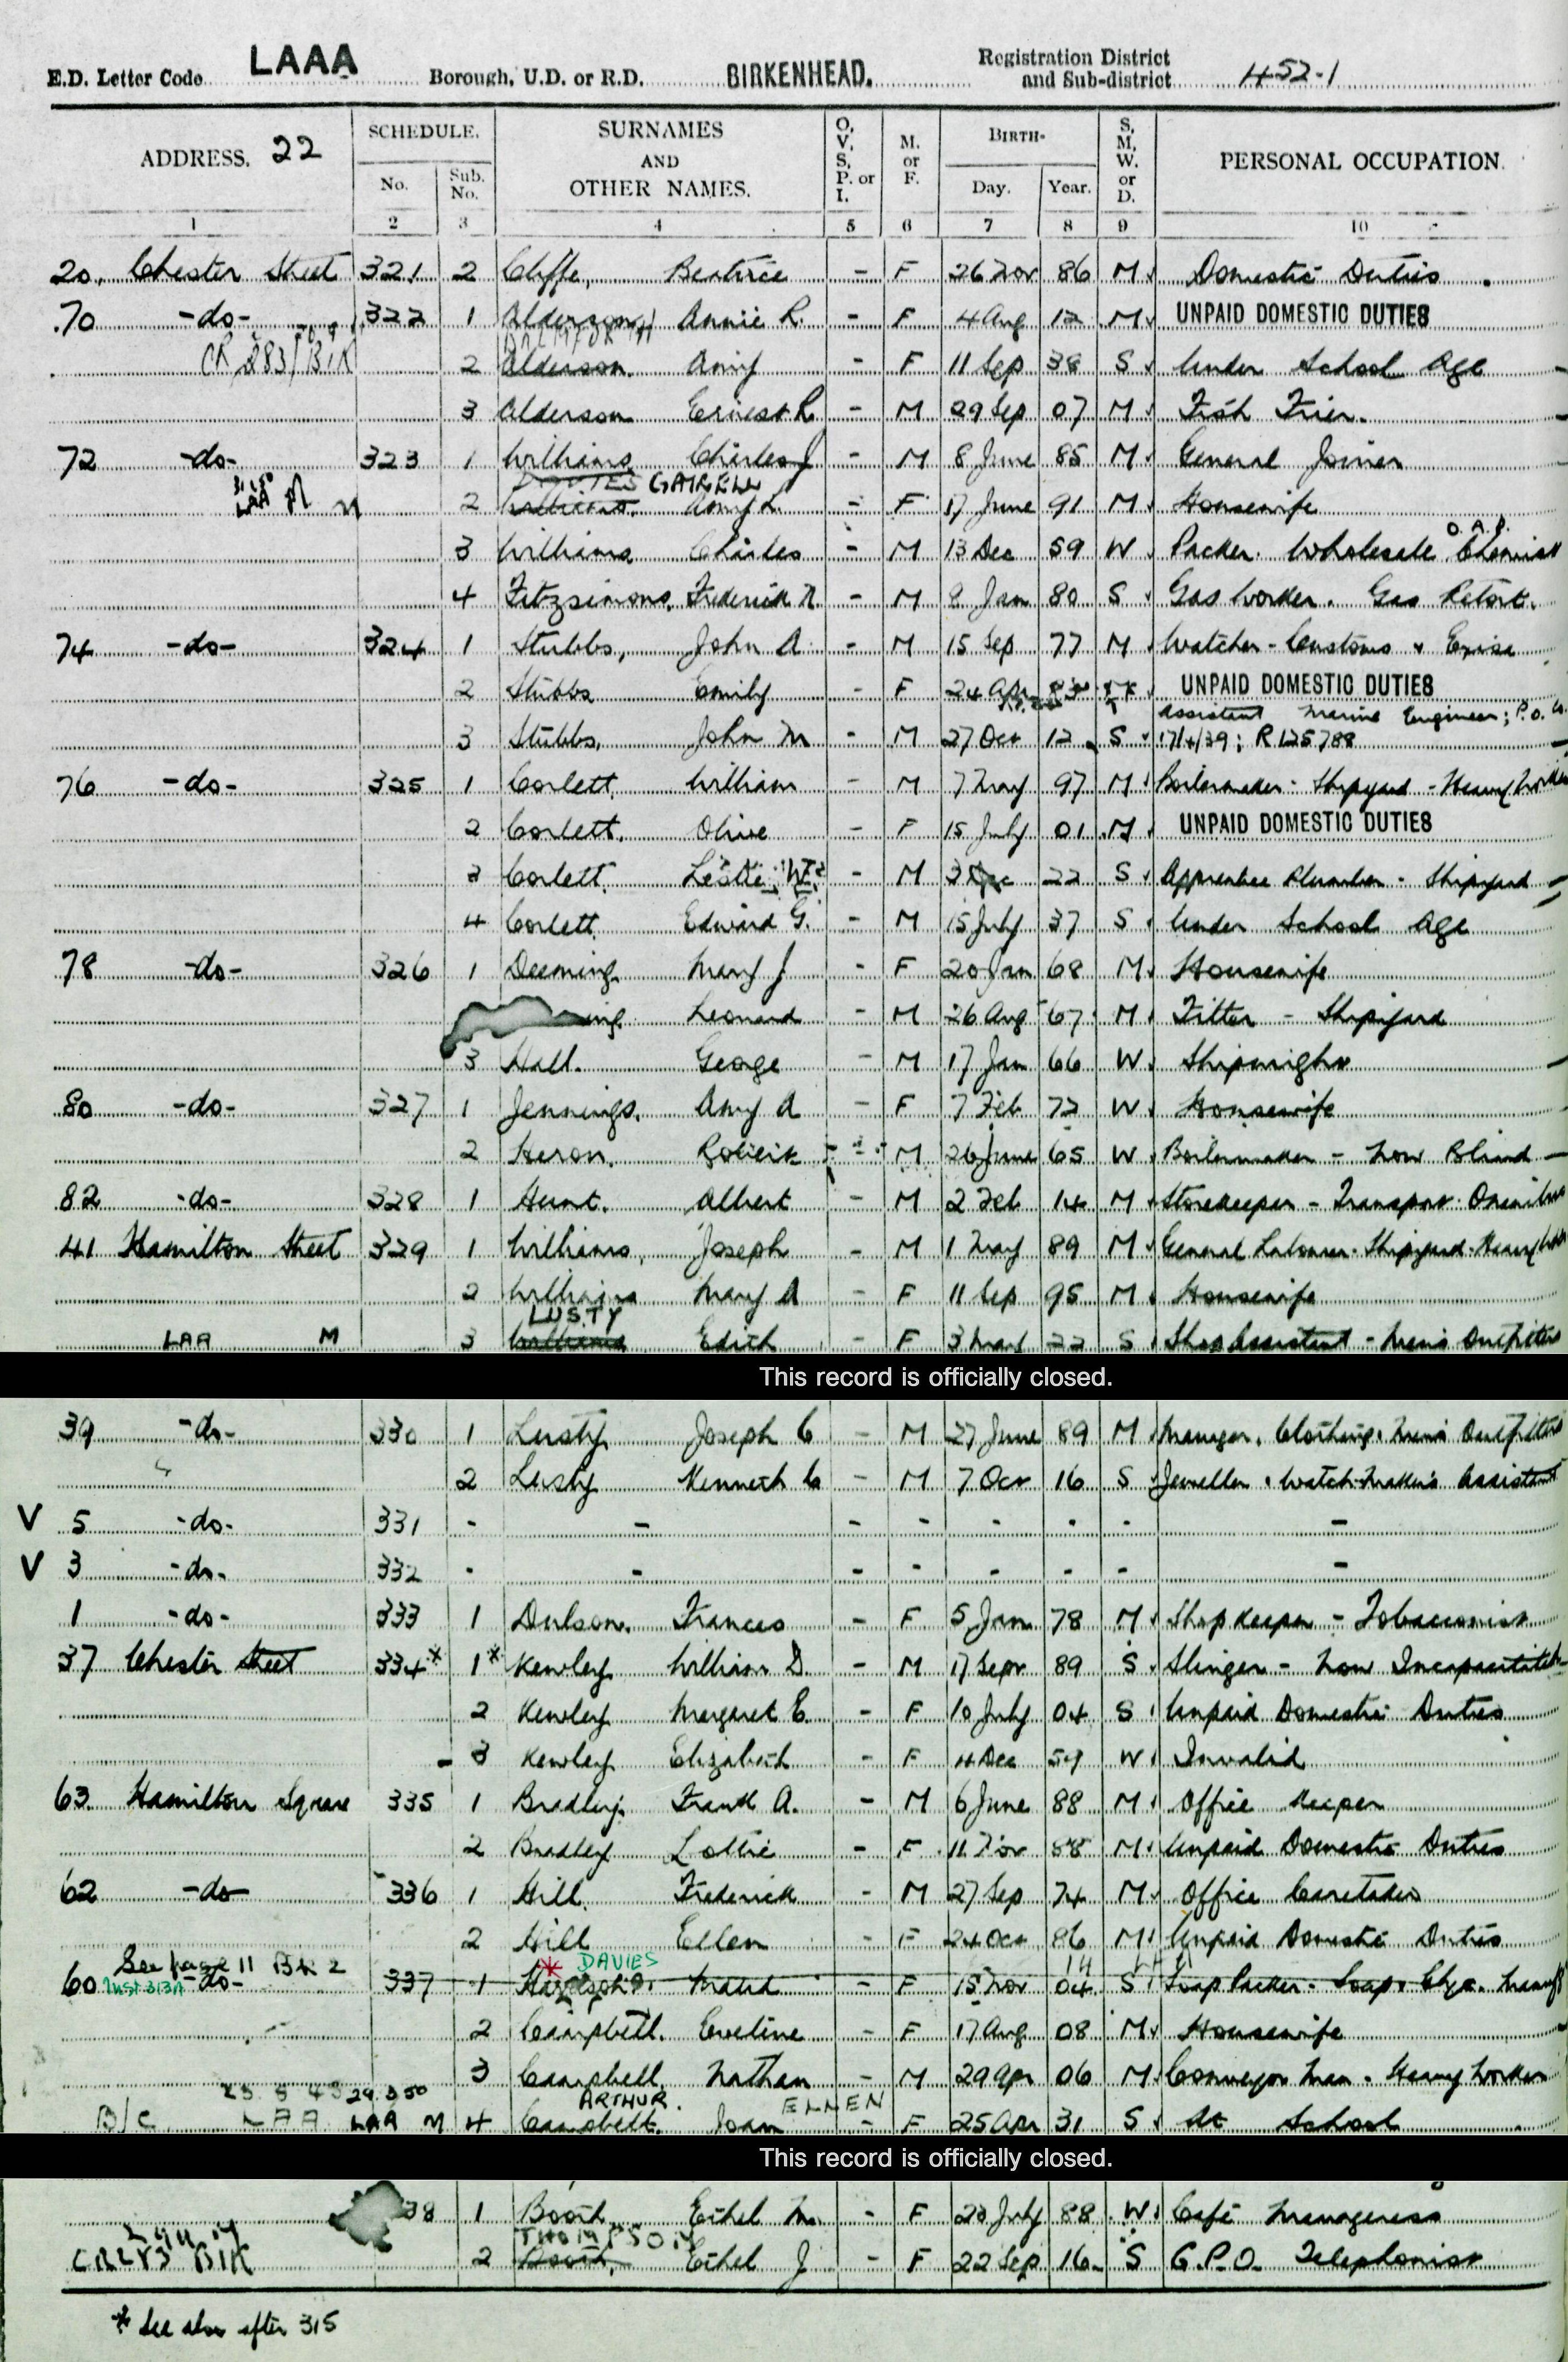 E.D. Letter Code LAAA Borough, U.D. or R.D. BIRKENHEAD. Registration District and Sub-district 452-1
ADDRESS. 22 SCHEDULE. No. Sub. No. SURNAMES AND OTHER NAMES. O, V, S, P. or I. M. or F. BIRTH- Day. Year. S, M, W. or D. PERSONAL OCCUPATION.
1 2 3 4 5 6 7 8 9 10
20. Chester Street 321 2 Cliffe, Beatrice - F 26 Nov 86 M Domestic Duties
70 -do- 322 1 Alderson Annie R. - F 4 Aug 12 M UNPAID DOMESTIC DUTIES
CR 283/BIK 2 Alderson. Amy - F 11 Sep 38 S Under School Age
3 Alderson Ernest R - M 29 Sep 07 M Fish Frier.
72 -do- 323 1 Williams Charles J - M 8 June 85 M General Joiner
GAIRELL
LAA M 2 Williams. Amy L. - F 17 June 91 M Housewife
O.A.P.
3 Williams Charles - M 13 Dec 59 W Packer. Wholesale Chemist
4 Fitzsimons, Frederick N. - M 8 Jan 80 S Gas Worker. Gas Retort.
74 -do- 324 1 Stubbs, John A - M 15 Sep 77 M Watcher - Customs & Excise
2 Stubbs Emily - F 24 Apr 83 UNPAID DOMESTIC DUTIES
Assistant Marine Engineer; P.O.
3 Stubbs, John M - M 27 Oct 12 S 17/4/39; R 125788
76 -do- 325 1 Corlett William - M 7 May 97 M Boilermaker - Shipyard - Heavy Worker
2 Corlett. Olive - F 15 July 01 M UNPAID DOMESTIC DUTIES
3 Corlett. Leslie W. - M 3 Dec 22 S Apprentice Plumber - Shipyard
4 Corlett. Edward G. - M 15 July 37 S Under School Age
78 -do- 326 1 Deeming Mary J - F 20 Jan 68 M Housewife
ing Leonard - M 26 Aug 67 M Fitter - Shipyard
3 Hall. George - M 17 Jan 66 W Shipwright
80 -do- 327 1 Jennings. Amy A - F 7 Feb 72 W Housewife
2 Heron. - M 26 June 65 W Boilermaker - Now Blind
82 -do- 328 1 Hunt. Albert - M 2 Feb 14 M Storekeeper - Transport Omnibus
41 Hamilton Street 329 1 Williams, Joseph - M 1 May 89 M General Labourer - Shipyard - Heavy
2 Williams Mary A - F 11 Sep 95 M Housewife
LUSTY
LAA M 3 Williams Edith - F 3 May 22 S Shop Assistant - Men's Outfitters
This record is officially closed.
39 -do- 330 1 Lusty Joseph C - M 27 June 89 M Manager. Clothing. Men's Outfitters
2 Lusty Kenneth C - M 7 Oct 16 S Jeweller & Watch-maker's Assistant
V 5 -do- 331 - - - - - - - -
V 3 -do- 332 - - - - - - - -
1 -do- 333 1 Dulson. Frances - F 5 Jan 78 M Shopkeeper - Tobacconist
37 Chester Street 334* 1* Kewley William D. - M 17 Sept 89 S Slinger - Now Incapacitated
2 Kewley Margaret E. - F 10 July 04 S Unpaid Domestic Duties
- 3 Kewley Elizabeth - F 4 Dec 59 W Invalid
63. Hamilton Square 335 1 Bradley. Frank A. - M 6 June 88 M Office Keeper
2 Bradley Lottie - F 11 Nov 88 M Unpaid Domestic Duties
62 -do- 336 1 Hill. Frederick - M 27 Sep 74 M Office Caretaker
2 Hill Ellen - F 24 Oct 86 M Unpaid Domestic Duties
See page 11 Bk 2 * DAVIES 14
60 -do- 337 1 Maud - F 15 Nov 04 S Soap Packer - Soap
2 Campbell. Eveline - F 17 Aug 08 M Housewife
3 Campbell Nathan - M 29 Apr 06 M Conveyor Man - Heavy Worker
23 5 49 29.3.50 ARTHUR. ELLEN
B/C LAA LAA M 4 Campbell. Joan - F 25 Apr 31 S At School
This record is officially closed.
38 1 Booth, Ethel M. - F 23 July 88 W Café Manageress
THOMPSON
CR283 BIK 2 Booth, Ethel J - F 22 Sep 16 S G.P.O. Telephonist
* See also after 315